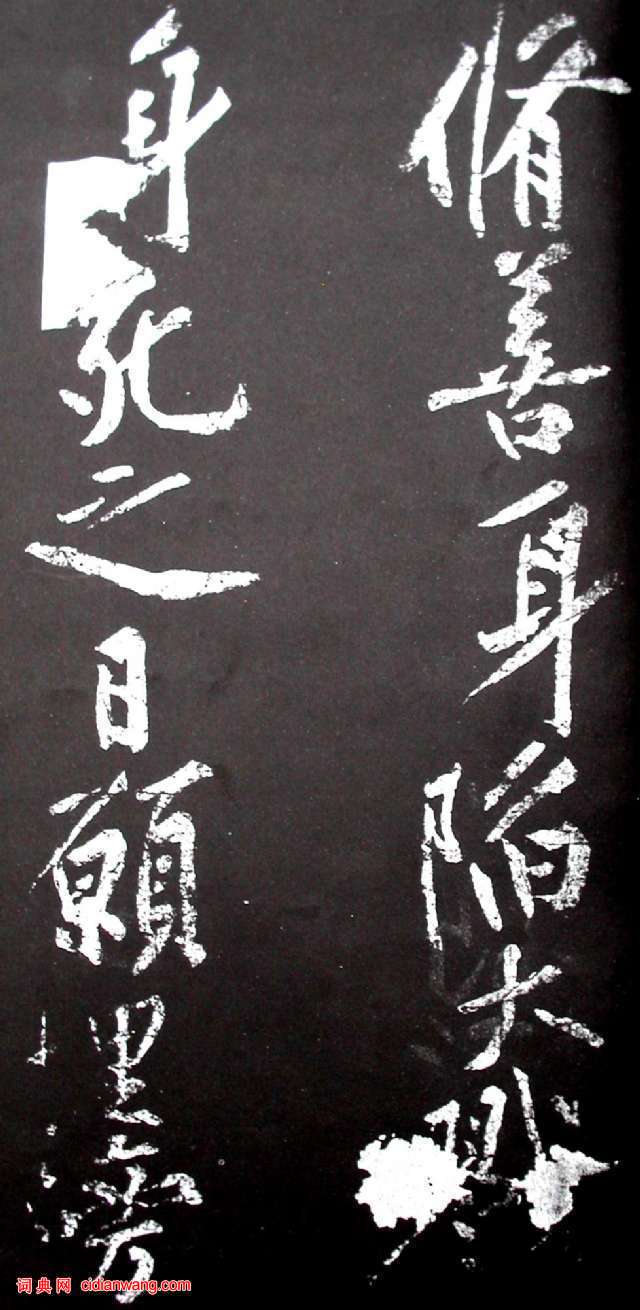 脩善身陷大戮
身死之日願埋滂
词典网 cidianwang.com